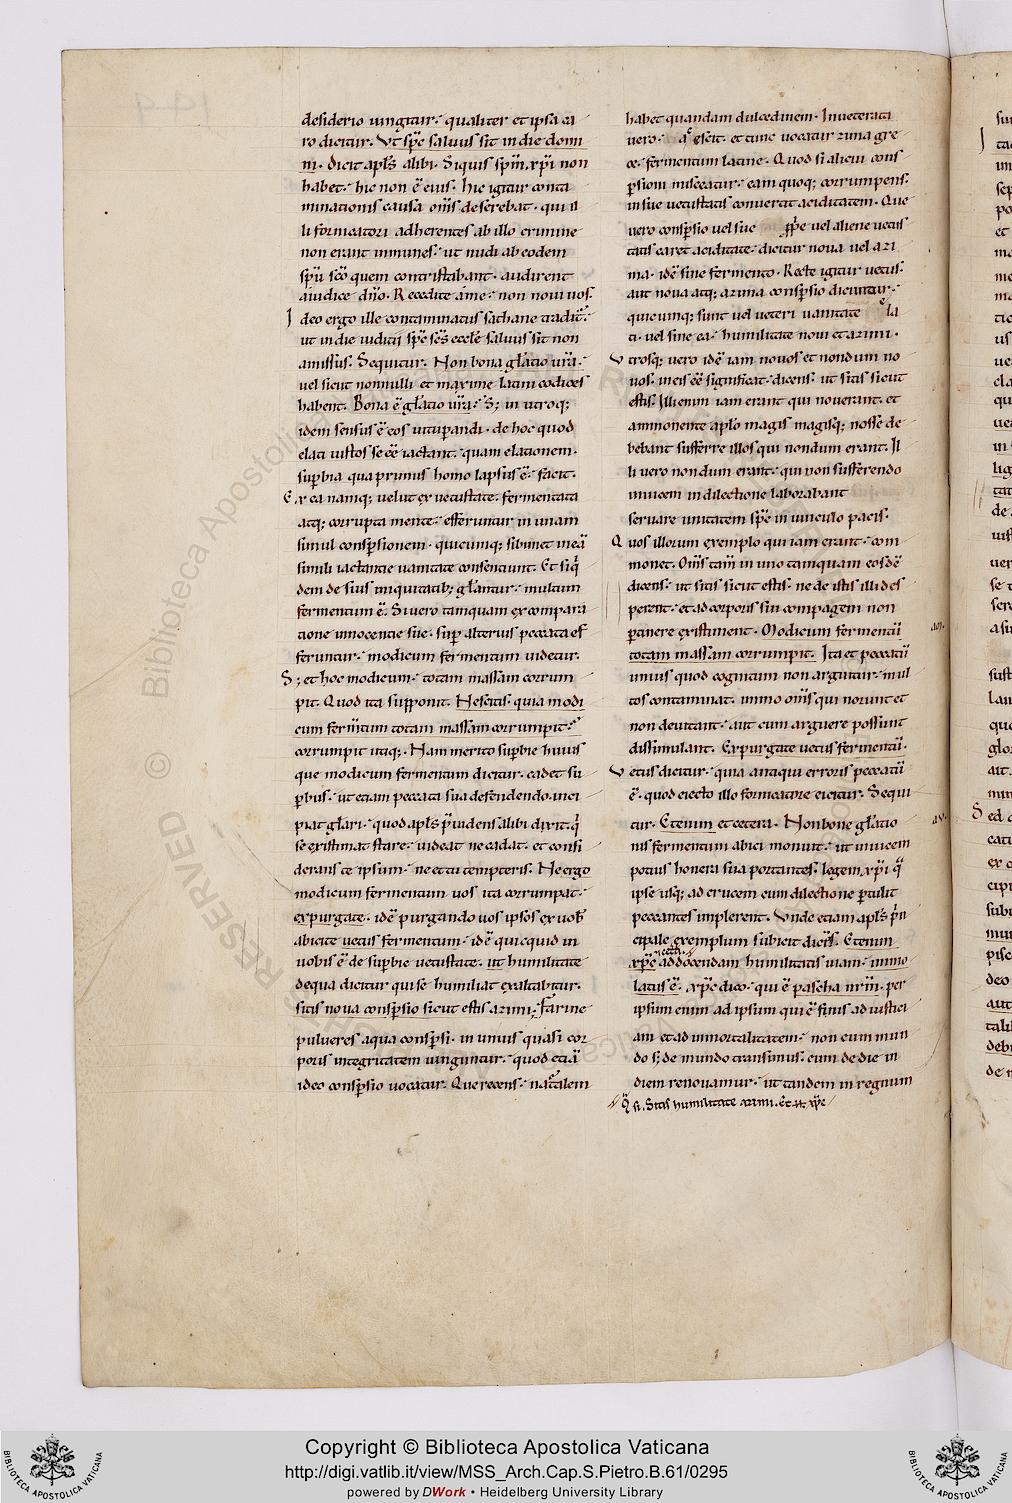 desiderio iungitur. qualiter et ipsa ca
ro dicitur. Ut spc saluus sit in die domi
ni. dicit apls alibi. Siquis spm xpi non
habet. hic non ē eius. hic igitur conta
minationis causa oms deserebat. qui il
li fornicatori adherentes ab illo crimine
non erant inmunes. ut nudi ab eodem
spu sco quem contristabant. audirent
a iudice dno. Recedite a me. non noui uos.
Ideo ergo ille contaminatus sathane tradit.
ut in die iudicii spc scs eccle saluus sit non
amissus. Sequitur. Non bona glatio ura.
uel sicut nonnulli et maxime latini codices
habent. Bona ē glatio ura. S; in utroq;
idem sensus ē eos uituperandi. de hoc quod
elati iustos se ēē iactant. quam elationem.
supbia qua primus homo lapsus ē. facit.
Ex ea namq; uelut ex uetustate. fermentata
atq; corrupta mente. efferuntur in unam
simul conspsionem. quicumq; sibimet in ea
simili iactantie uanitate consentiunt. Et siqi
dem de suis iniquitatib; glantur. multum
fermentum ē. Si uero tamquam ex compara
tione innocentie sue. sup alterius peccata ef
feruntur. modicum fermentum uidetur.
S; et hoc modicum. totam massam corrum
pit. Quod ita supponit. Nescitis. quia modi
cum fermtum totam massam corrumpit.
corrumpit utiq;. Nam merito supbie huius
que modicum fermentum dicitur. cadet su
pbus. ut etiam peccata sua defendendo inci
piat glari. quod apls puidens alibi dixit. qi
se existimat stare. uideat ne cadat. et consi
derans te ipsum. ne et tu tempteris. Ne ergo
modicum fermentum uos ita corrumpat.
expurgate. idē purgando uos ipsos ex uob
abicite uetus fermentum. idē quicquid in
uobis ē de supbie uetustate. ut humilitate
de qua dicitur qui se humiliat exaltabitur.
sitis noua conspsio sicut estis azimi. Farine
pulueres aqua conspsi. in unius quasi cor
poris integritatem iunguntur. quod etiā
ideo conspsio uocatur. Que recens. naturalem
habet quandam dulcedinem. Inueterata
uero. acescit. et tunc uocatur zima gre
ce. fermentum latine. Quod si alicui cons
psioni misceatur. eam quoq; corrumpens.
in sue uetustatis conuertit aciditatem. Que
uero conspsio uel sue ppe uel aliene uetus
tatis caret aciditate. dicitur noua uel azi
ma. idē sine fermento. Recte igitur uetus.
aut noua atq; azima conspsio dicuntur.
quicumq; sunt uel ueteri uanitate ela
ti. uel sine ea. humilitate noui et azimi.
Utrosq; uero idē iam nouos et nondum no
uos. in eis ēē significat. dicens. ut sitis sicut
estis. Illi enim iam erant qui nouerant. et
ammonente aplo magis magisq; nosse de
bebant sufferre illos qui nondum erant. Il
li uero nondum erant. qui non sufferendo
inuicem in dilectione laborabant
seruare unitatem spc in uinculo pacis.
Quos illorum exemplo qui iam erant. com
monet. Oms tam in uno tamquam eosdē
dicens. ut sitis sicut estis. ne de istis illi des
perent. et ad corporis sui compagem non
ptinere existiment. Modicum fermentū
totam massam corrumpit. Ita et peccatū
unius quod cognitum non arguitur. mul
tos contaminat. immo oms qui norunt et
non deuitant. aut cum arguere possunt
dissimulant. Expurgate uetus fermentū.
Uetus dicitur. quia antiqui erroris peccatū
ē. quod eiecto illo fornicatore eicitur. Sequi
tur. Etenim et cetera. Non bone glatio
nis fermentum abici monuit. ut inuicem
potius honera sua portantes. legem xpi qā
ipse usq; ad crucem cum dilectione ptulit
peccantes implerent. Unde etiam apls pn
cipale exemplum subiecit dicēs. Etenim
xpc ad docendam humilitatis uiam. immo
latus ē. xpc dico. qui ē pascha nrm. per
ipsum enim ad ipsum qui ē finis ad iustici
am et ad inmortalitatem. non cum mun
do s; de mundo transimus. cum de die in
diem renouamur. ut tandem in regnum